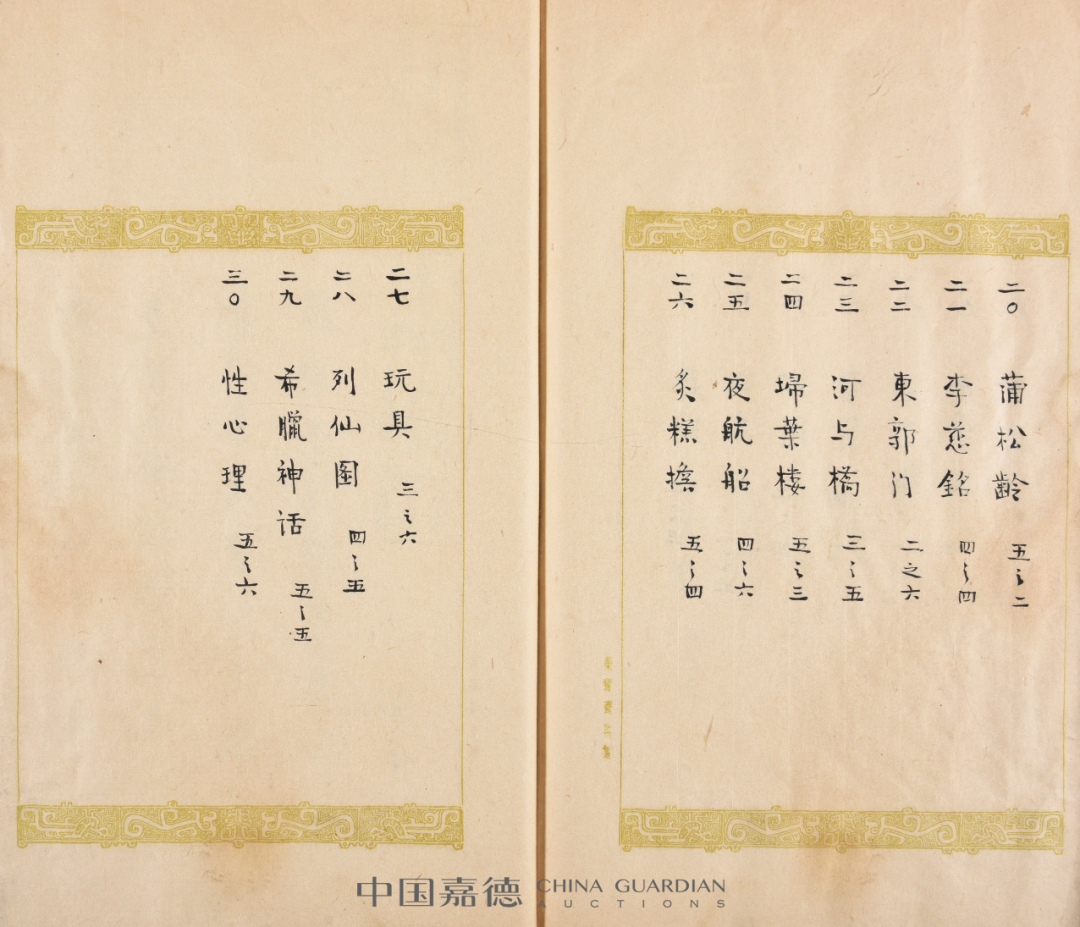 二〇 蒲松齡 五之二
二一 李慈銘 四之四
二二 東郭门 二之六
二三 河与橋 三之五
二四 埽葉楼 五之三
二五 夜航船 四之六
二六 炙糕擔 五之四
二七 玩具 三之六
二八 列仙图 四之五
二九 希臘神话 五之五
三〇 性心理 五之六
中国嘉德 CHINA GUARDIAN
AUCTIONS